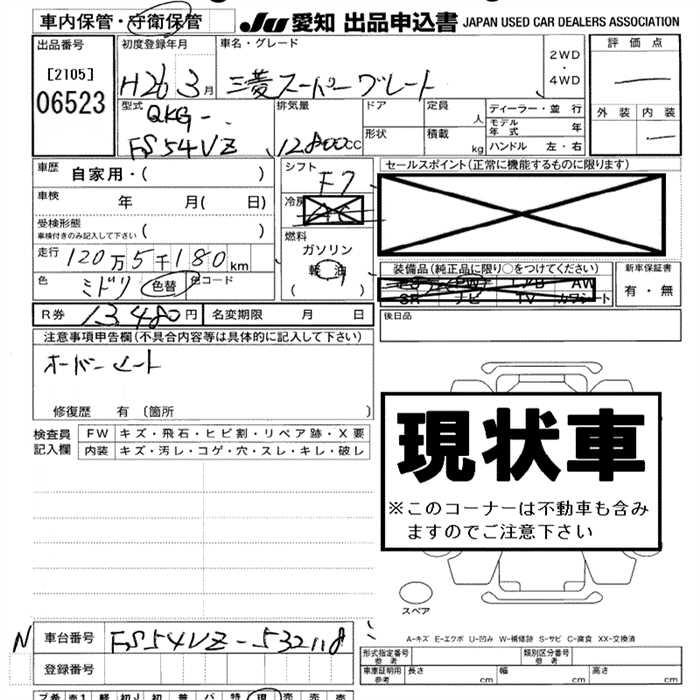 車内保管・守衛保管
JU 愛知 出品申込書 JAPAN USED CAR DEALERS ASSOCIATION
出品番号
[2105]
06523
初度登録年月
H26 3月
車名・グレード
三菱スーパーグレート
2WD
・
4WD
評価点
外装 内装
型式
QKG-
FS54VZ
排気量
12800cc
ドア
形状
定員
人
積載
kg
ディーラー・並行
モデル年式 年
ハンドル 左・右
車歴 自家用・( )
車検 年 月( 日)
受検形態
車検付きのみ記入して下さい ( )
走行 120万5千180km
色 ミドリ 色替 色コード
シフト
F7
冷房
燃料
ガソリン
軽油
( )
セールスポイント(正常に機能するものに限ります)
装備品(純正品に限り○をつけてください)
PS PW エアB AW
SR ナビ TV カワシート
新車保証書
有・無
後日品
R券 13,480円 名変期限 月 日
注意事項申告欄(不具合内容等は具体的に記入して下さい)
修復歴 有〔箇所 〕
検査員
記入欄
FW キズ・飛石・ヒビ割・リペア跡・X要
内装 キズ・汚レ・コゲ・穴・スレ・キレ・破レ
現状車
※このコーナーは不動車も含み
ますのでご注意下さい
スペア
A-キズ E-エクボ U-凹み W-補修跡 S-サビ C-腐食 XX-交換済
N 車台番号 FS54VZ-532118
登録番号
形式指定番号
参考
類別区分番号
参考
車庫証明用
参考
長さ cm 幅 cm 高さ cm